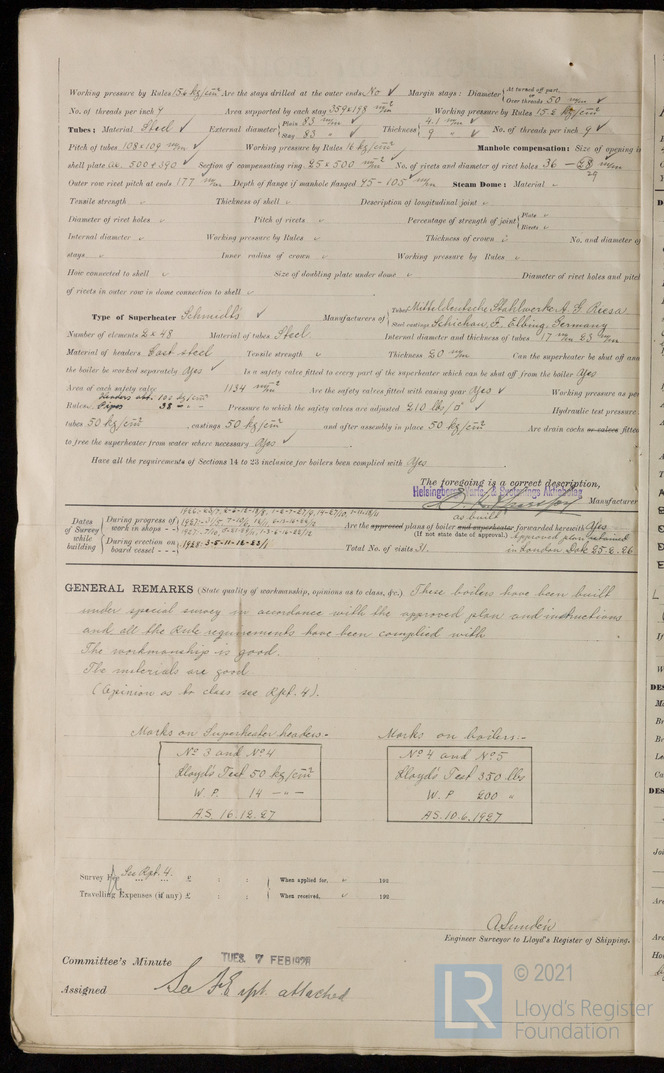 Working pressure by Rules 15.4 kg/cm² Are the stays drilled at the outer ends No ✓ Margin stays: Diameter { At turned off part, or Over threads 50 m/m ✓
No. of threads per inch 9 Area supported by each stay 359x198 m/m² Working pressure by Rules 15.2 kg/cm² ✓
Tubes: Material Steel ✓ External diameter { Plain 83 m/m ✓ Stay 83 " ✓ Thickness { 4.1 m/m ✓ 9 " ✓ No. of threads per inch 9 ✓
Pitch of tubes 108x109 m/m ✓ Working pressure by Rules 16 kg/cm² Manhole compensation: Size of opening in
shell plate 500x390 ✓ Section of compensating ring 25x500 m/m² ✓ No. of rivets and diameter of rivet holes 36 – 28 m/m
29
Outer row rivet pitch at ends 177 m/m Depth of flange if manhole flanged 95-105 m/m Steam Dome: Material
Tensile strength Thickness of shell Description of longitudinal joint
Diameter of rivet holes Pitch of rivets Percentage of strength of joint { Plate Rivets
Internal diameter Working pressure by Rules Thickness of crown No. and diameter of
stays Inner radius of crown Working pressure by Rules
How connected to shell Size of doubling plate under dome Diameter of rivet holes and pitch
of rivets in outer row in dome connection to shell
Type of Superheater Schmidts ✓ Manufacturers of { Tubes Mitteldeutsche Stahlwerke A.G. Riesa Steel castings Schichau, F. Elbing, Germany
Number of elements 2x48 Material of tubes Steel Internal diameter and thickness of tubes 17 m/m 23 m/m
Material of headers Cast steel Tensile strength Thickness 20 m/m Can the superheater be shut off and
the boiler be worked separately Yes ✓ Is a safety valve fitted to every part of the superheater which can be shut off from the boiler Yes
Area of each safety valve 1134 m/m² Are the safety valves fitted with easing gear Yes ✓ Working pressure as per
Rules 100 kg/cm² 38 - " - Pressure to which the safety valves are adjusted 210 lbs/□" ✓ Hydraulic test pressure:
tubes 50 kg/cm², castings 50 kg/cm² and after assembly in place 50 kg/cm² Are drain cocks or valves fitted
to free the superheater from water where necessary Yes ✓
Have all the requirements of Sections 14 to 23 inclusive for boilers been complied with Yes
The foregoing is a correct description,
Helsingborgs Varfs & Svetsnings Aktiebolag
Manufacturer
Dates of Survey while building { During progress of work in shops - -
During erection on board vessel - - - 1928: 3-5-11-16-23/1
as built
Are the approved plans of boiler and superheater forwarded herewith Yes
(If not state date of approval.) Approved plan retained
Total No. of visits 31. in London Dok 25-2-26
GENERAL REMARKS (State quality of workmanship, opinions as to class, &c.) These boilers have been built
under special survey in accordance with the approved plan and instructions
and all the Rule requirements have been complied with
The workmanship is good.
The materials are good
(Opinion as to class see Rpt. 4).
Marks on Superheater headers:-
No 3 and No 4
Lloyd's Test 50 kg/cm²
W.P. 14 - " -
A.S. 16.12.27
Marks on boilers:-
No 4 and No 5
Lloyd's Test 350 lbs
W.P 200 "
A.S. 10.6.1927
Survey Fee See Rpt. 4. £ : : When applied for, 192
Travelling Expenses (if any) £ : : When received, 192
A. Lindén
Engineer Surveyor to Lloyd's Register of Shipping.
Committee's Minute TUES. 7 FEB 1928
Assigned See F.E. rpt. attached
LR © 2021
Lloyd's Register
Foundation